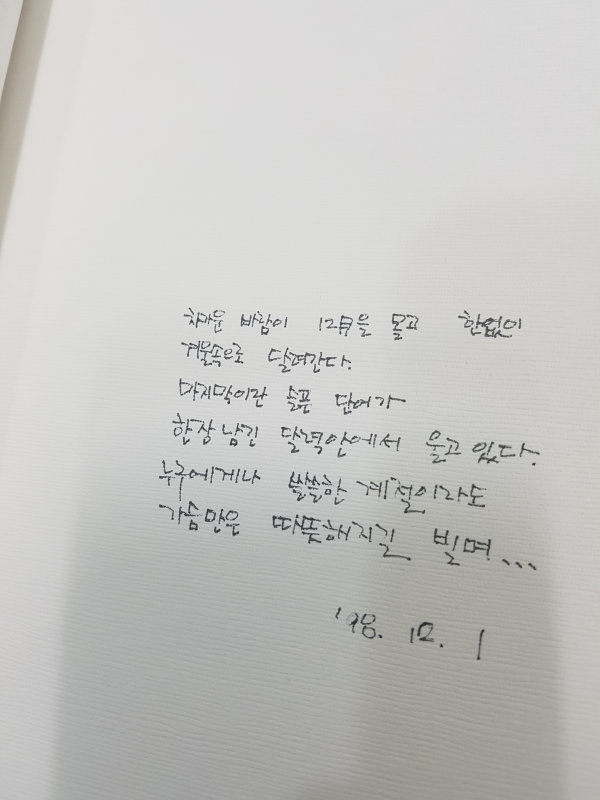 차가운 바람이 12月을 몰고 한없이
겨울속으로 달려간다.
마지막이란 슬픈 단어가
한장 남긴 달력안에서 울고 있다.
누구에게나 쓸쓸한 계절이라도
가슴만은 따뜻해지길 빌며...
'98. 12. 1